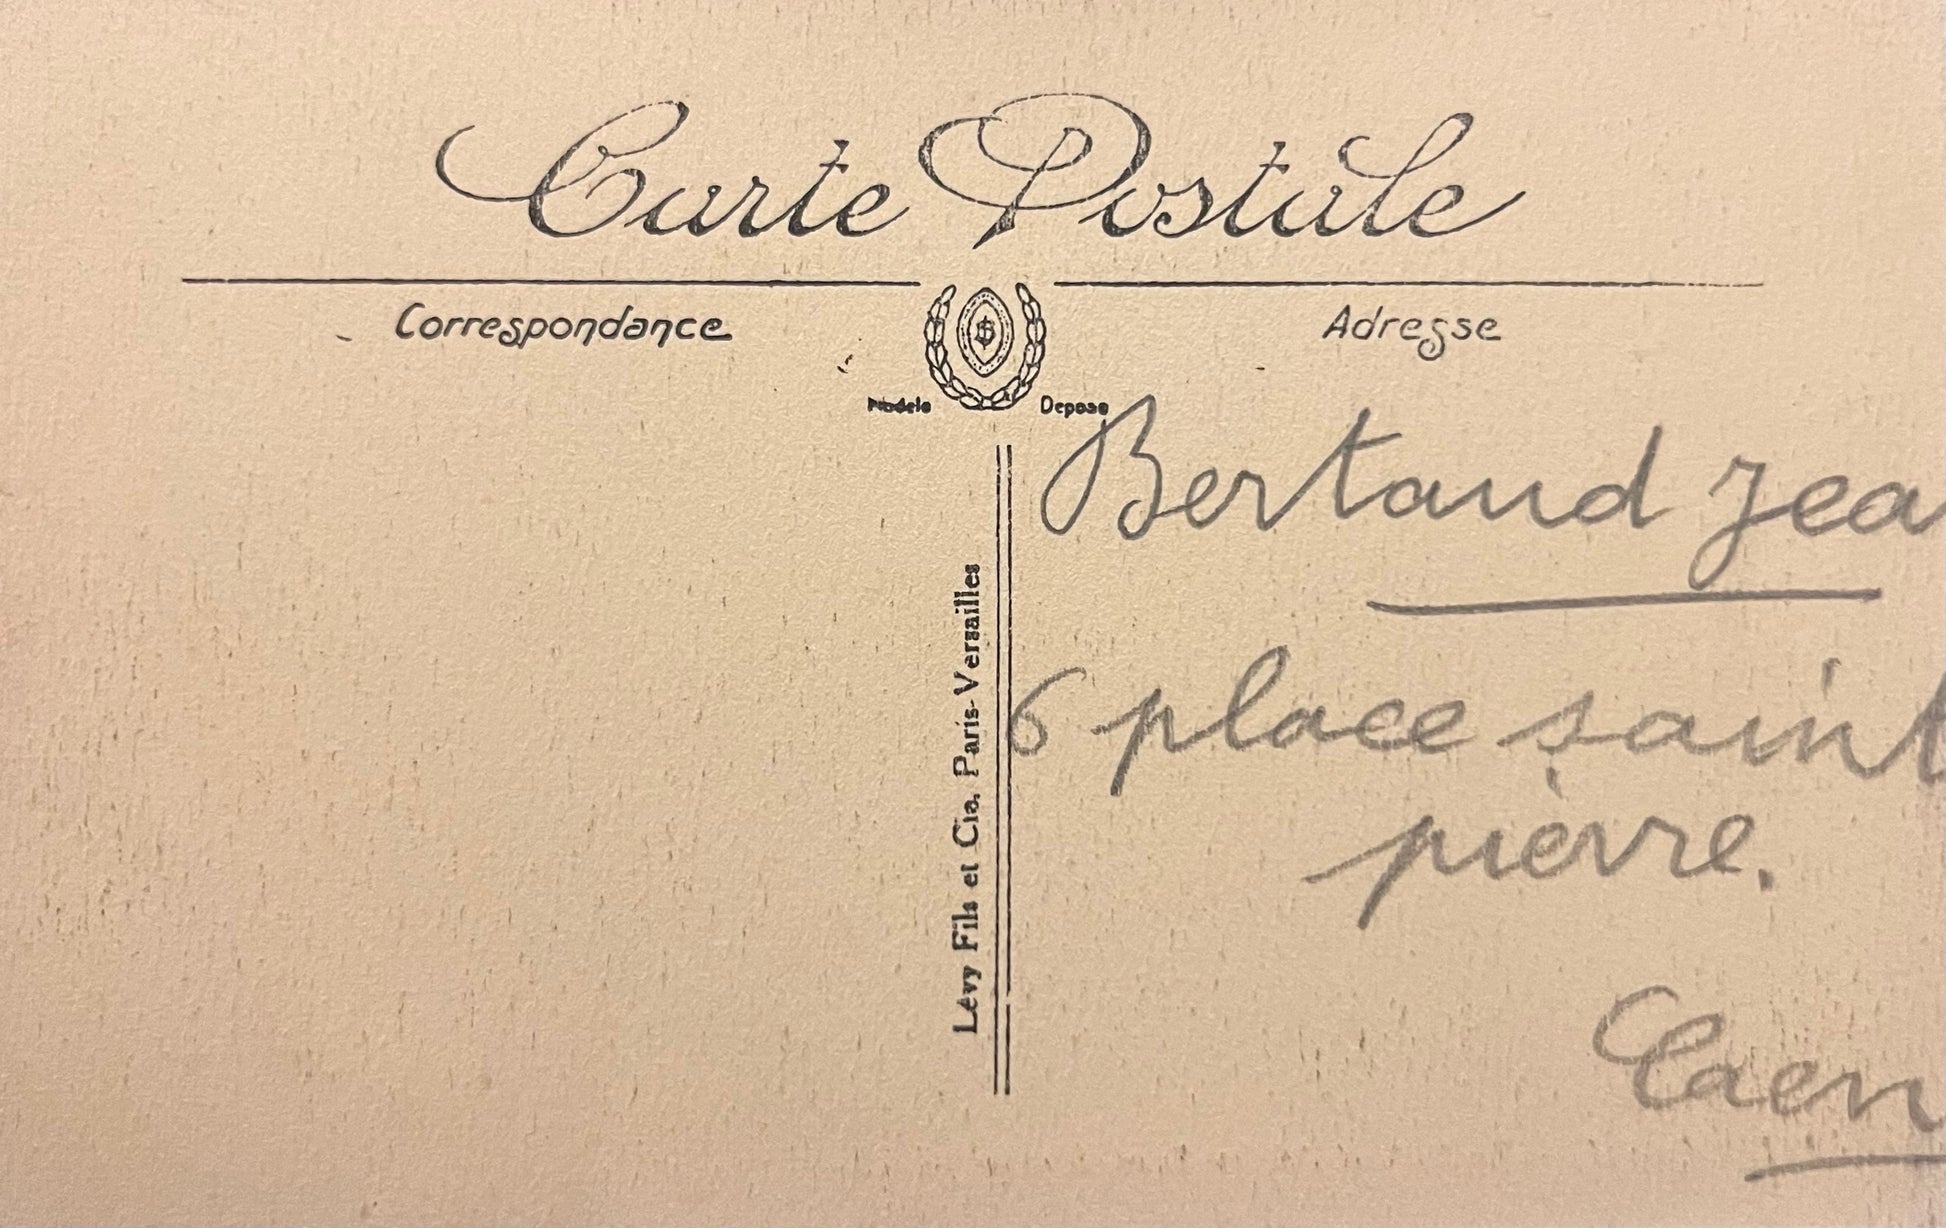 Carte Postale
Correspondance
Adresse
Modele Depose
Lévy Fils et Cie, Paris-Versailles
Bertaud Jea
6 place saint
pièrre.
Caen